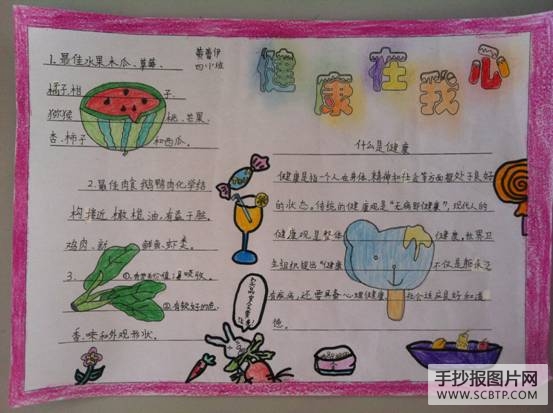 1. 最佳水果木瓜、草莓、
橘子、柑 子、
猕猴 桃、芒果、
杏、柿子 和西瓜。
四小班
健康在我心
什么是健康
健康是指一个人在身体、精神和社会等方面都处于良好
的状态。传统的健康观是“无病即健康”,现代人的
健康观是整体 健康,世界卫
生组织提出“健康 不仅是躯
有疾病,还要具备心理健康、 社会适应良好和道
德。
2. 最佳肉食 鹅鸭肉化学结
构接近橄榄油,有益于心脏。
鸡肉、 鲜鱼、虾类。
3. ①有营养价值,易吸收。
②有较好的色、
香、味和外观形状。
手抄报图片网
WWW.SCBTP.COM